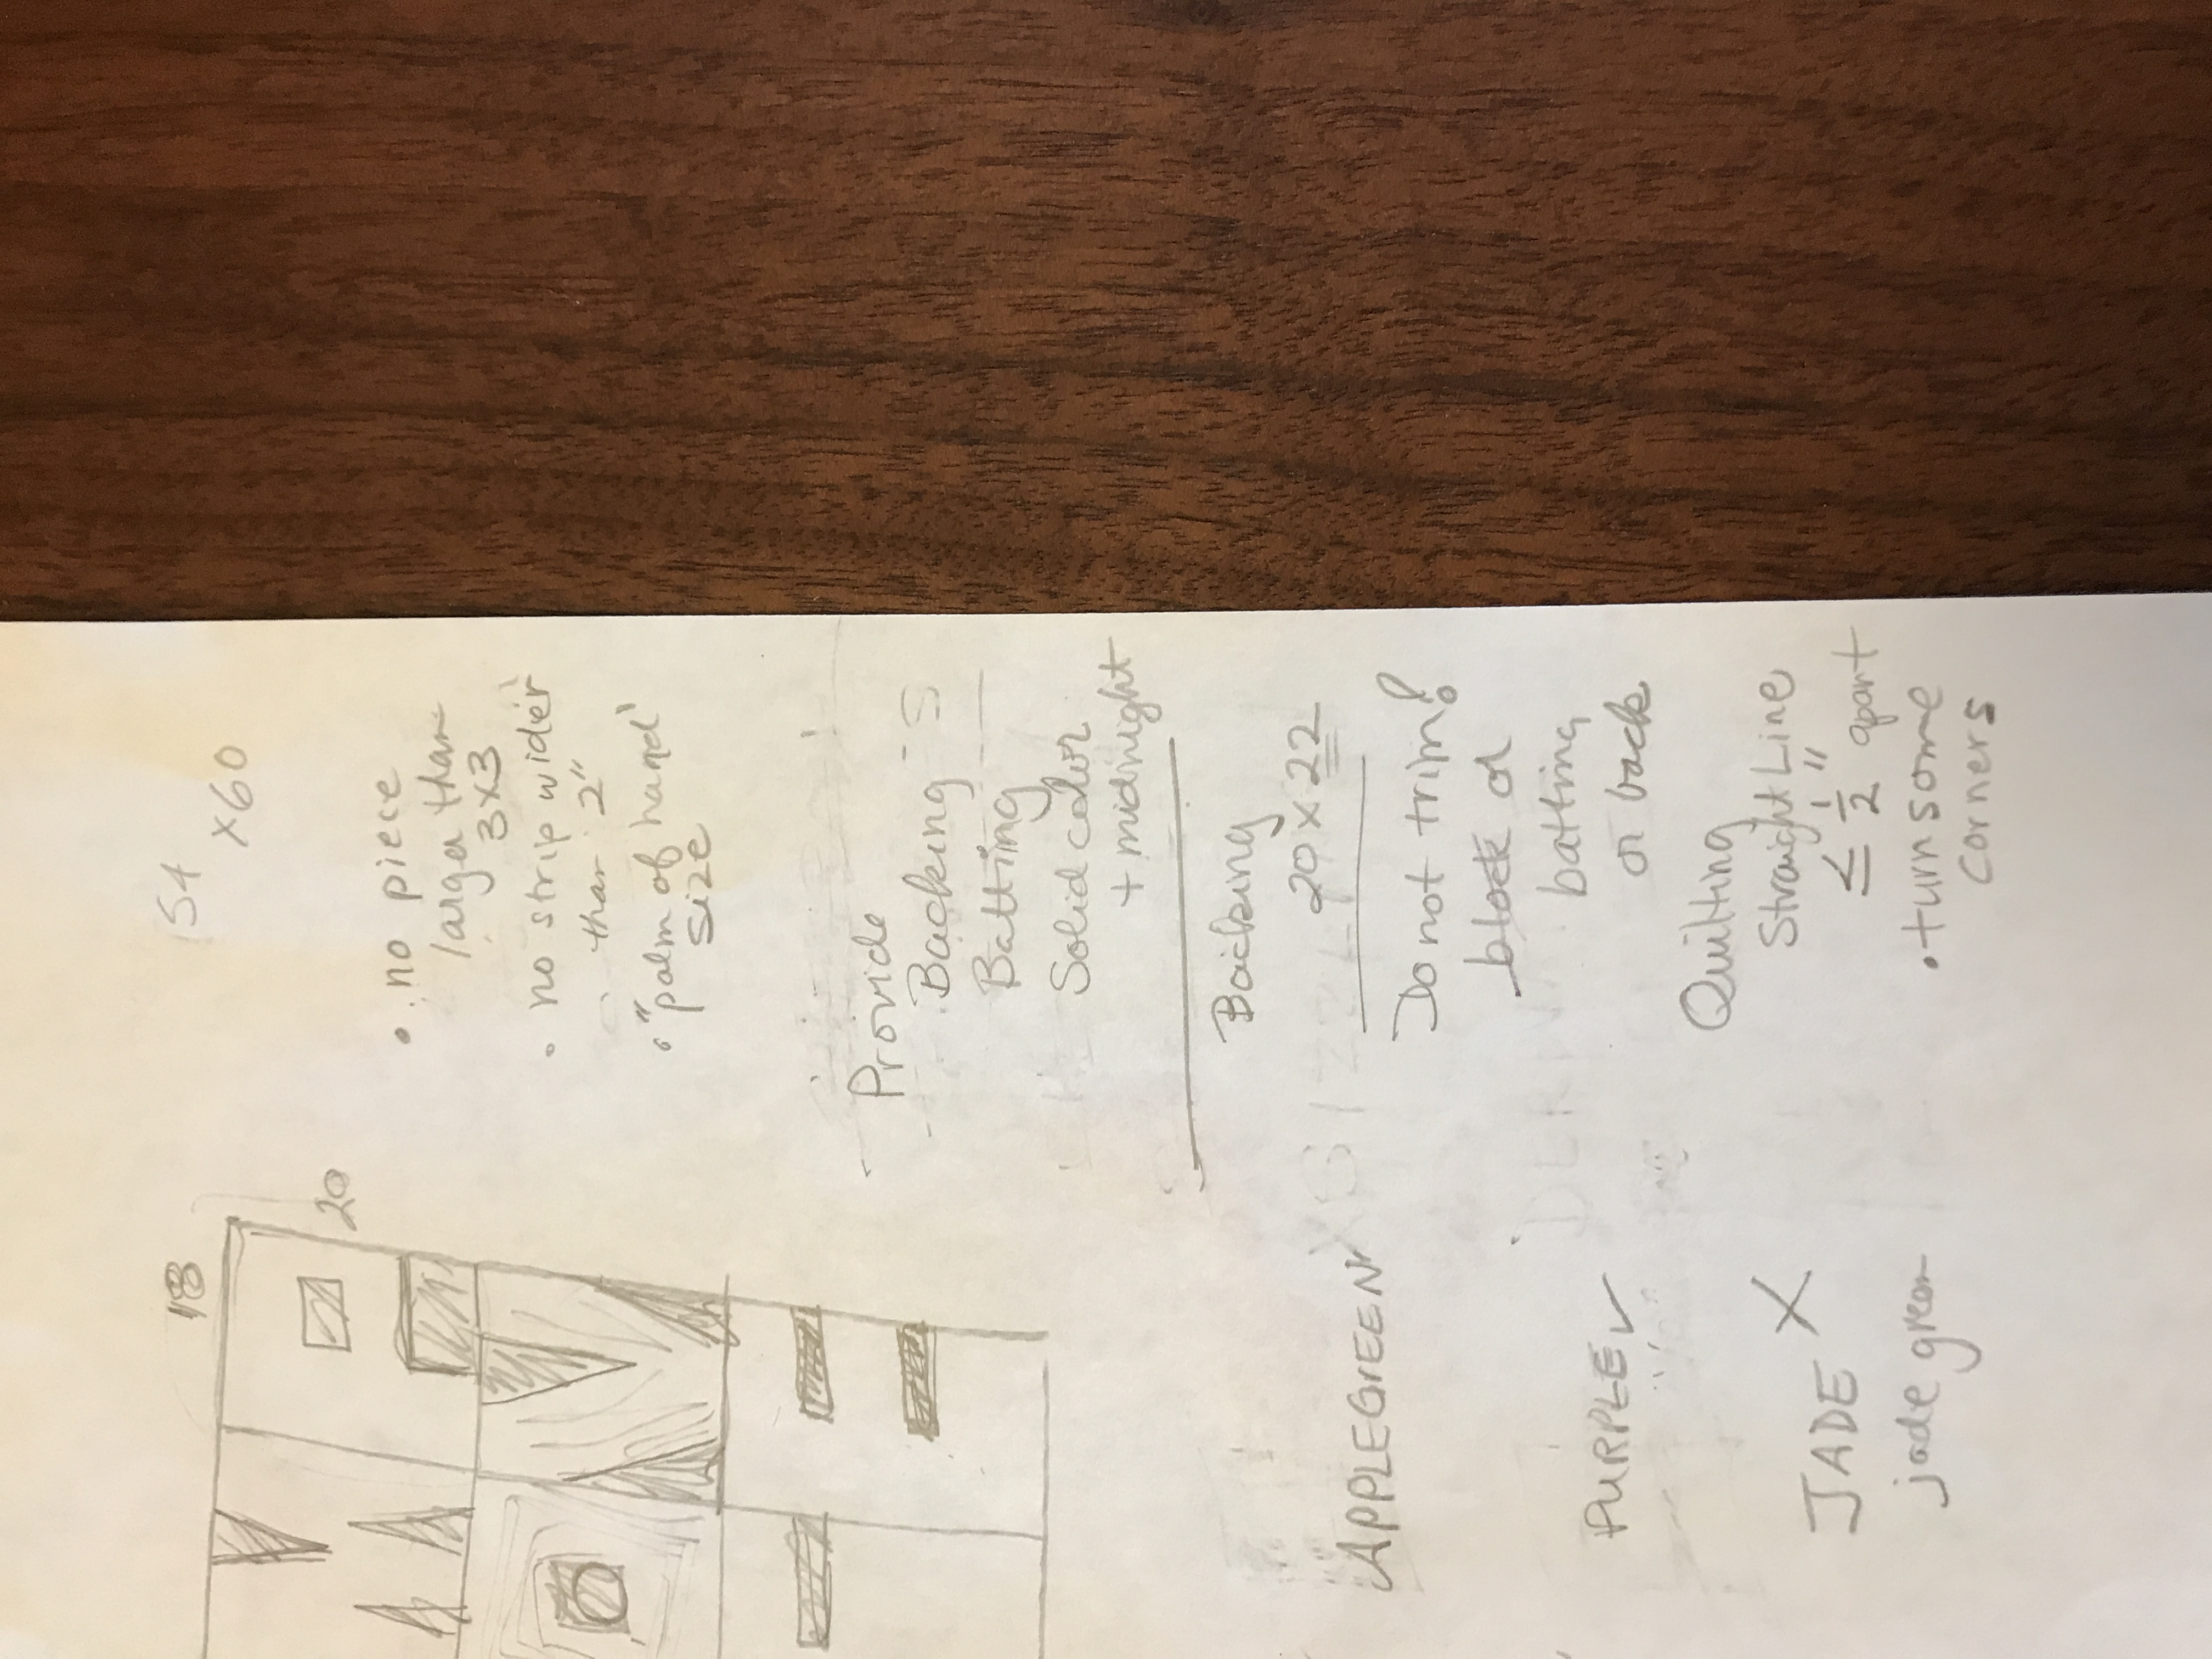 54
x60
18
20
• no piece
larger than
3x3
• no strip wider
than 2"
• "palm of hand'
size
Provide
Backing - S
Batting
Solid color
+ midnight
Backing
20 x 22
Do not trim!
block or
batting
or back
Quilting
Straight Line
≤ 1/2" apart
• turn some
corners
APPLEGREEN
PURPLE ✓
JADE X
jade green